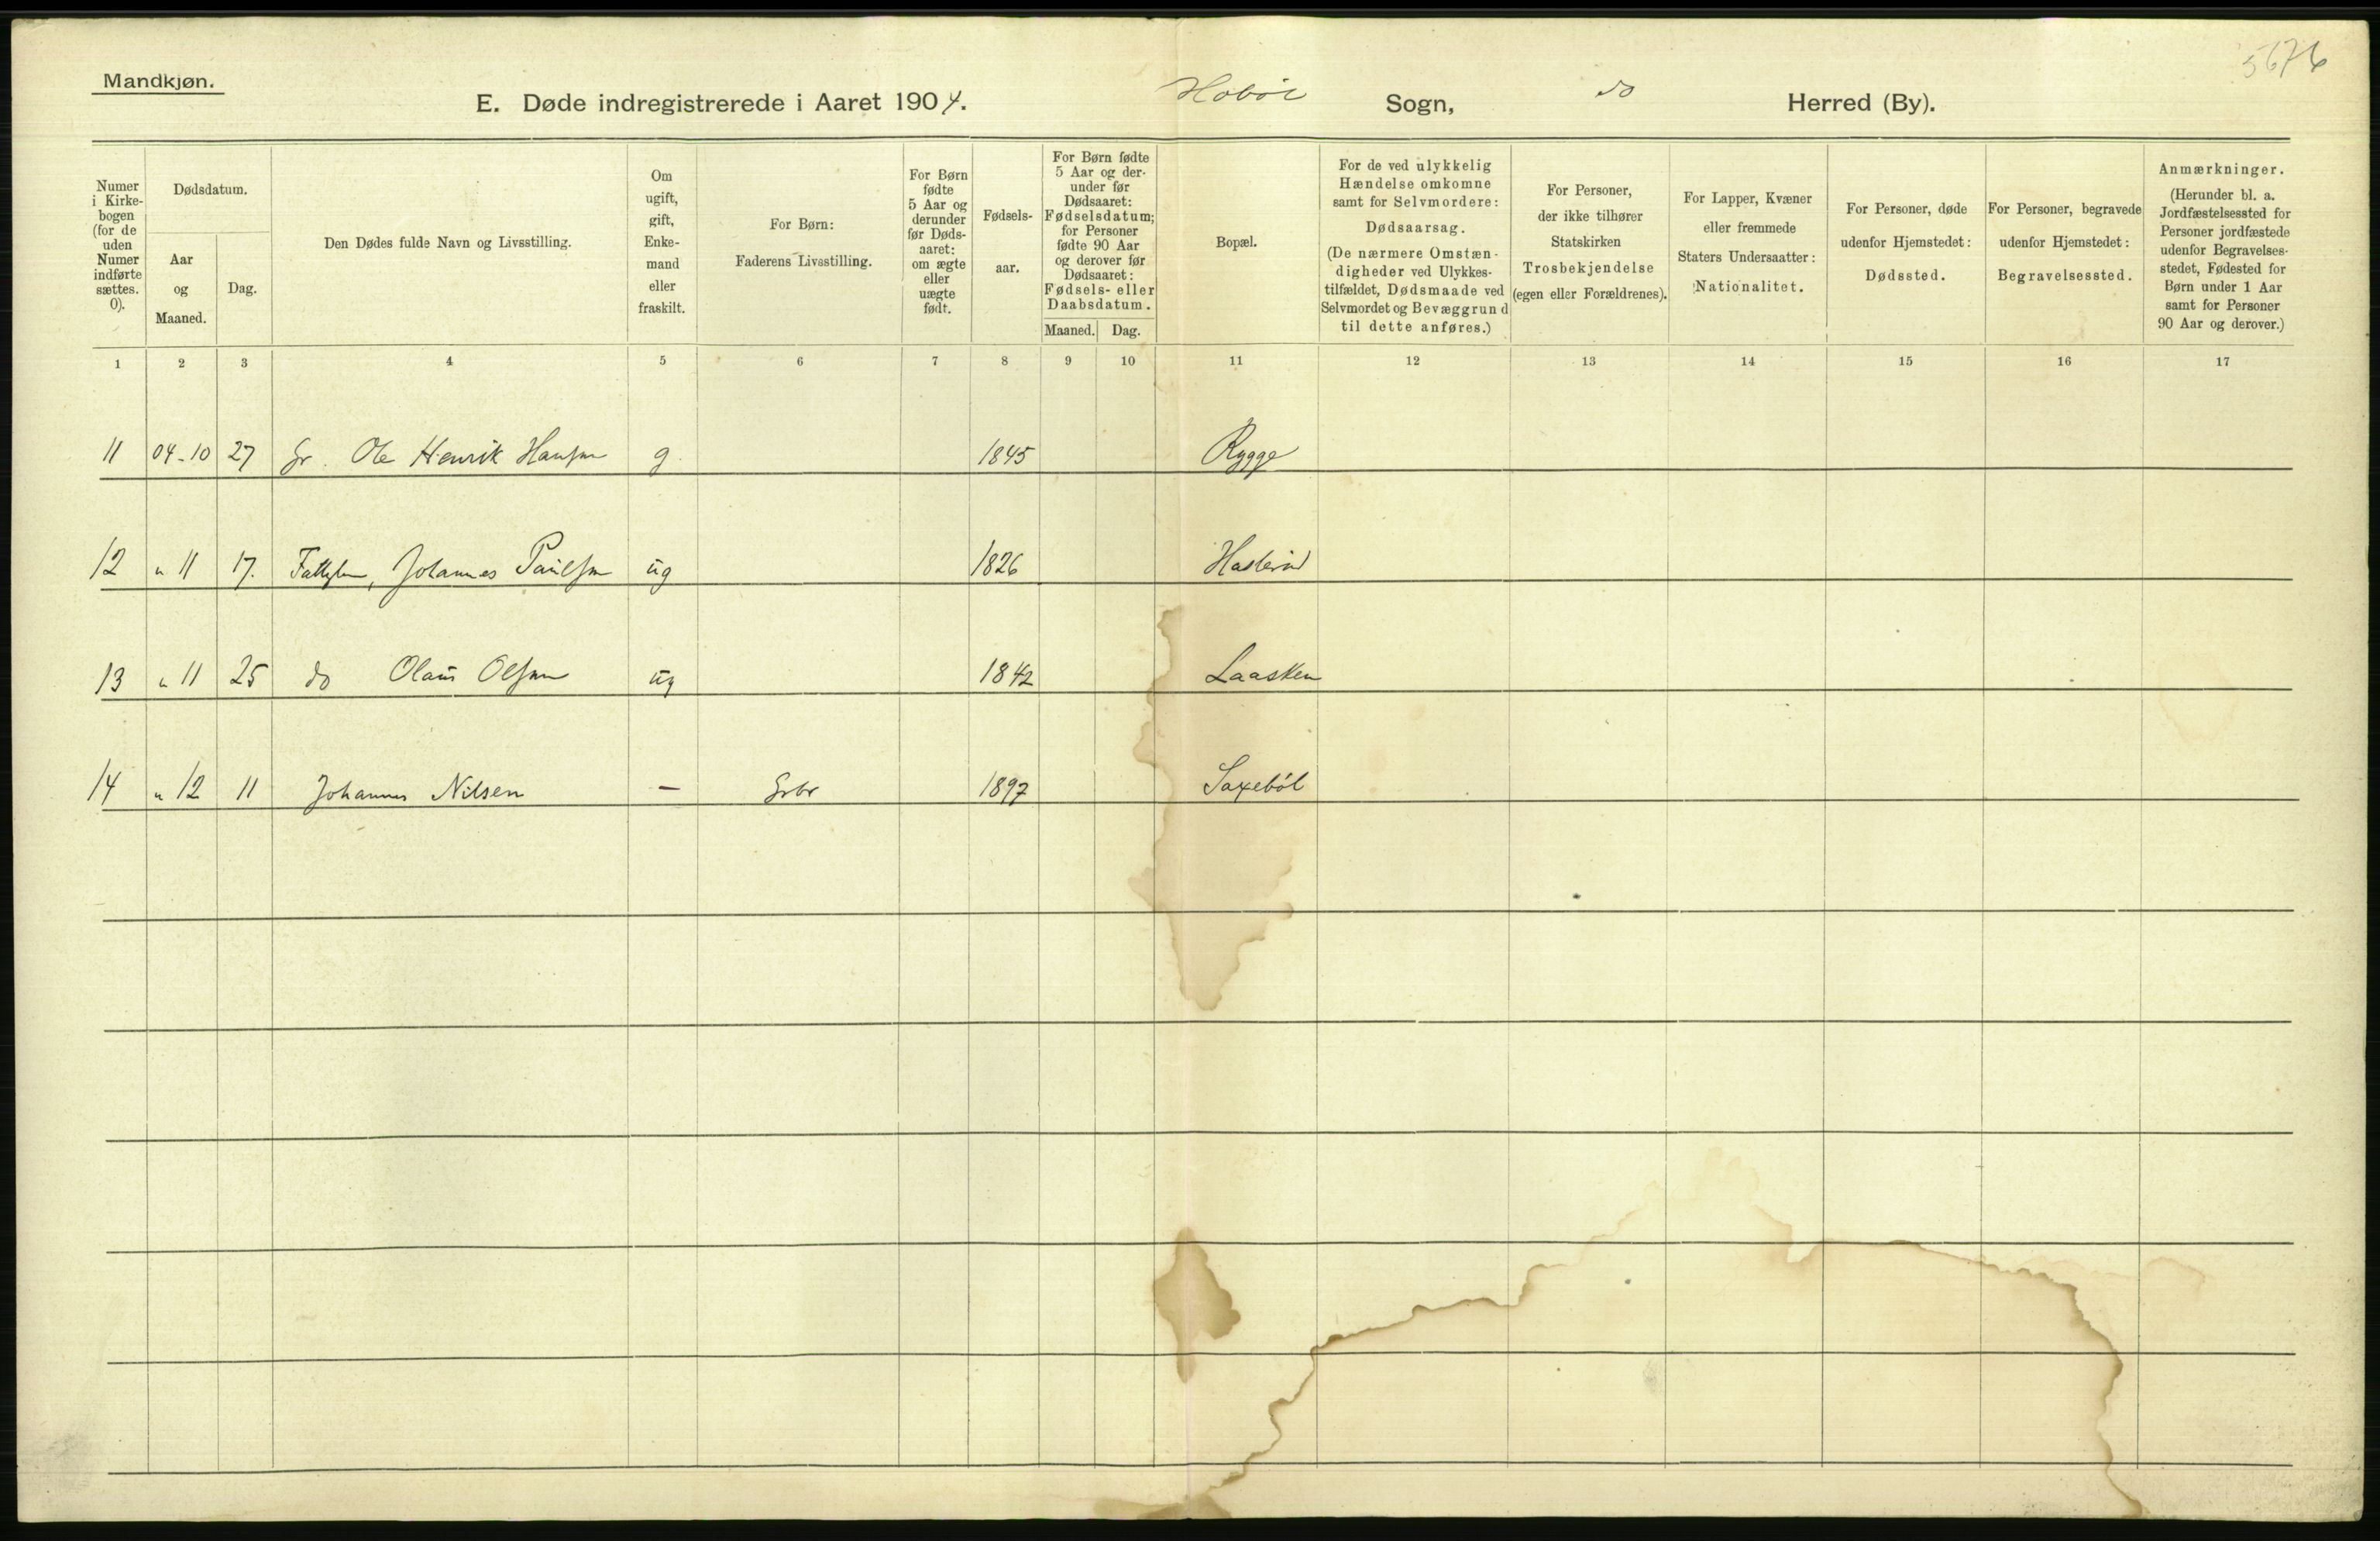 Mandkjøn.
5676
E. Døde indregistrerede i Aaret 1904. Hobøl Sogn, do Herred (By).
Numer i Kirke-bogen (for de uden Numer indførte sættes. 0).
Dødsdatum.
Aar og Maaned.
Dag.
Den Dødes fulde Navn og Livsstilling.
Om ugift, gift, Enke-mand eller fraskilt.
For Børn: Faderens Livsstilling.
For Børn fødte 5 Aar og derunder før Døds-aaret: om ægte eller uægte født.
Fødsels-aar.
For Børn fødte 5 Aar og der-under før Dødsaaret: Fødselsdatum; for Personer fødte 90 Aar og derover før Dødsaaret: Fødsels- eller Daabsdatum.
Maaned. Dag.
Bopæl.
For de ved ulykkelig Hændelse omkomne samt for Selvmordere: Dødsaarsag. (De nærmere Omstæn-digheder ved Ulykkes-tilfældet, Dødsmaade ved Selvmordet og Bevæggrund til dette anføres.)
For Personer, der ikke tilhører Statskirken Trosbekjendelse (egen eller Forældrenes).
For Lapper, Kvæner eller fremmede Staters Undersaatter: Nationalitet.
For Personer, døde udenfor Hjemstedet: Dødssted.
For Personer, begravede udenfor Hjemstedet: Begravelsessted.
Anmærkninger. (Herunder bl. a. Jordfæstelsessted for Personer jordfæstede udenfor Begravelses-stedet, Fødested for Børn under 1 Aar samt for Personer 90 Aar og derover.)
1 2 3 4 5 6 7 8 9 10 11 12 13 14 15 16 17
11 04-10 27 Gr. Ole Henrik Hansen g 1845 Rygge
12 " 11 17. Johannes Paulsen ug 1826
13 " 11 25 do Olaus Olsen ug 1842 Laasken
14 " 12 11 Johannes Nilsen — Grbr 1897 Saxebøl